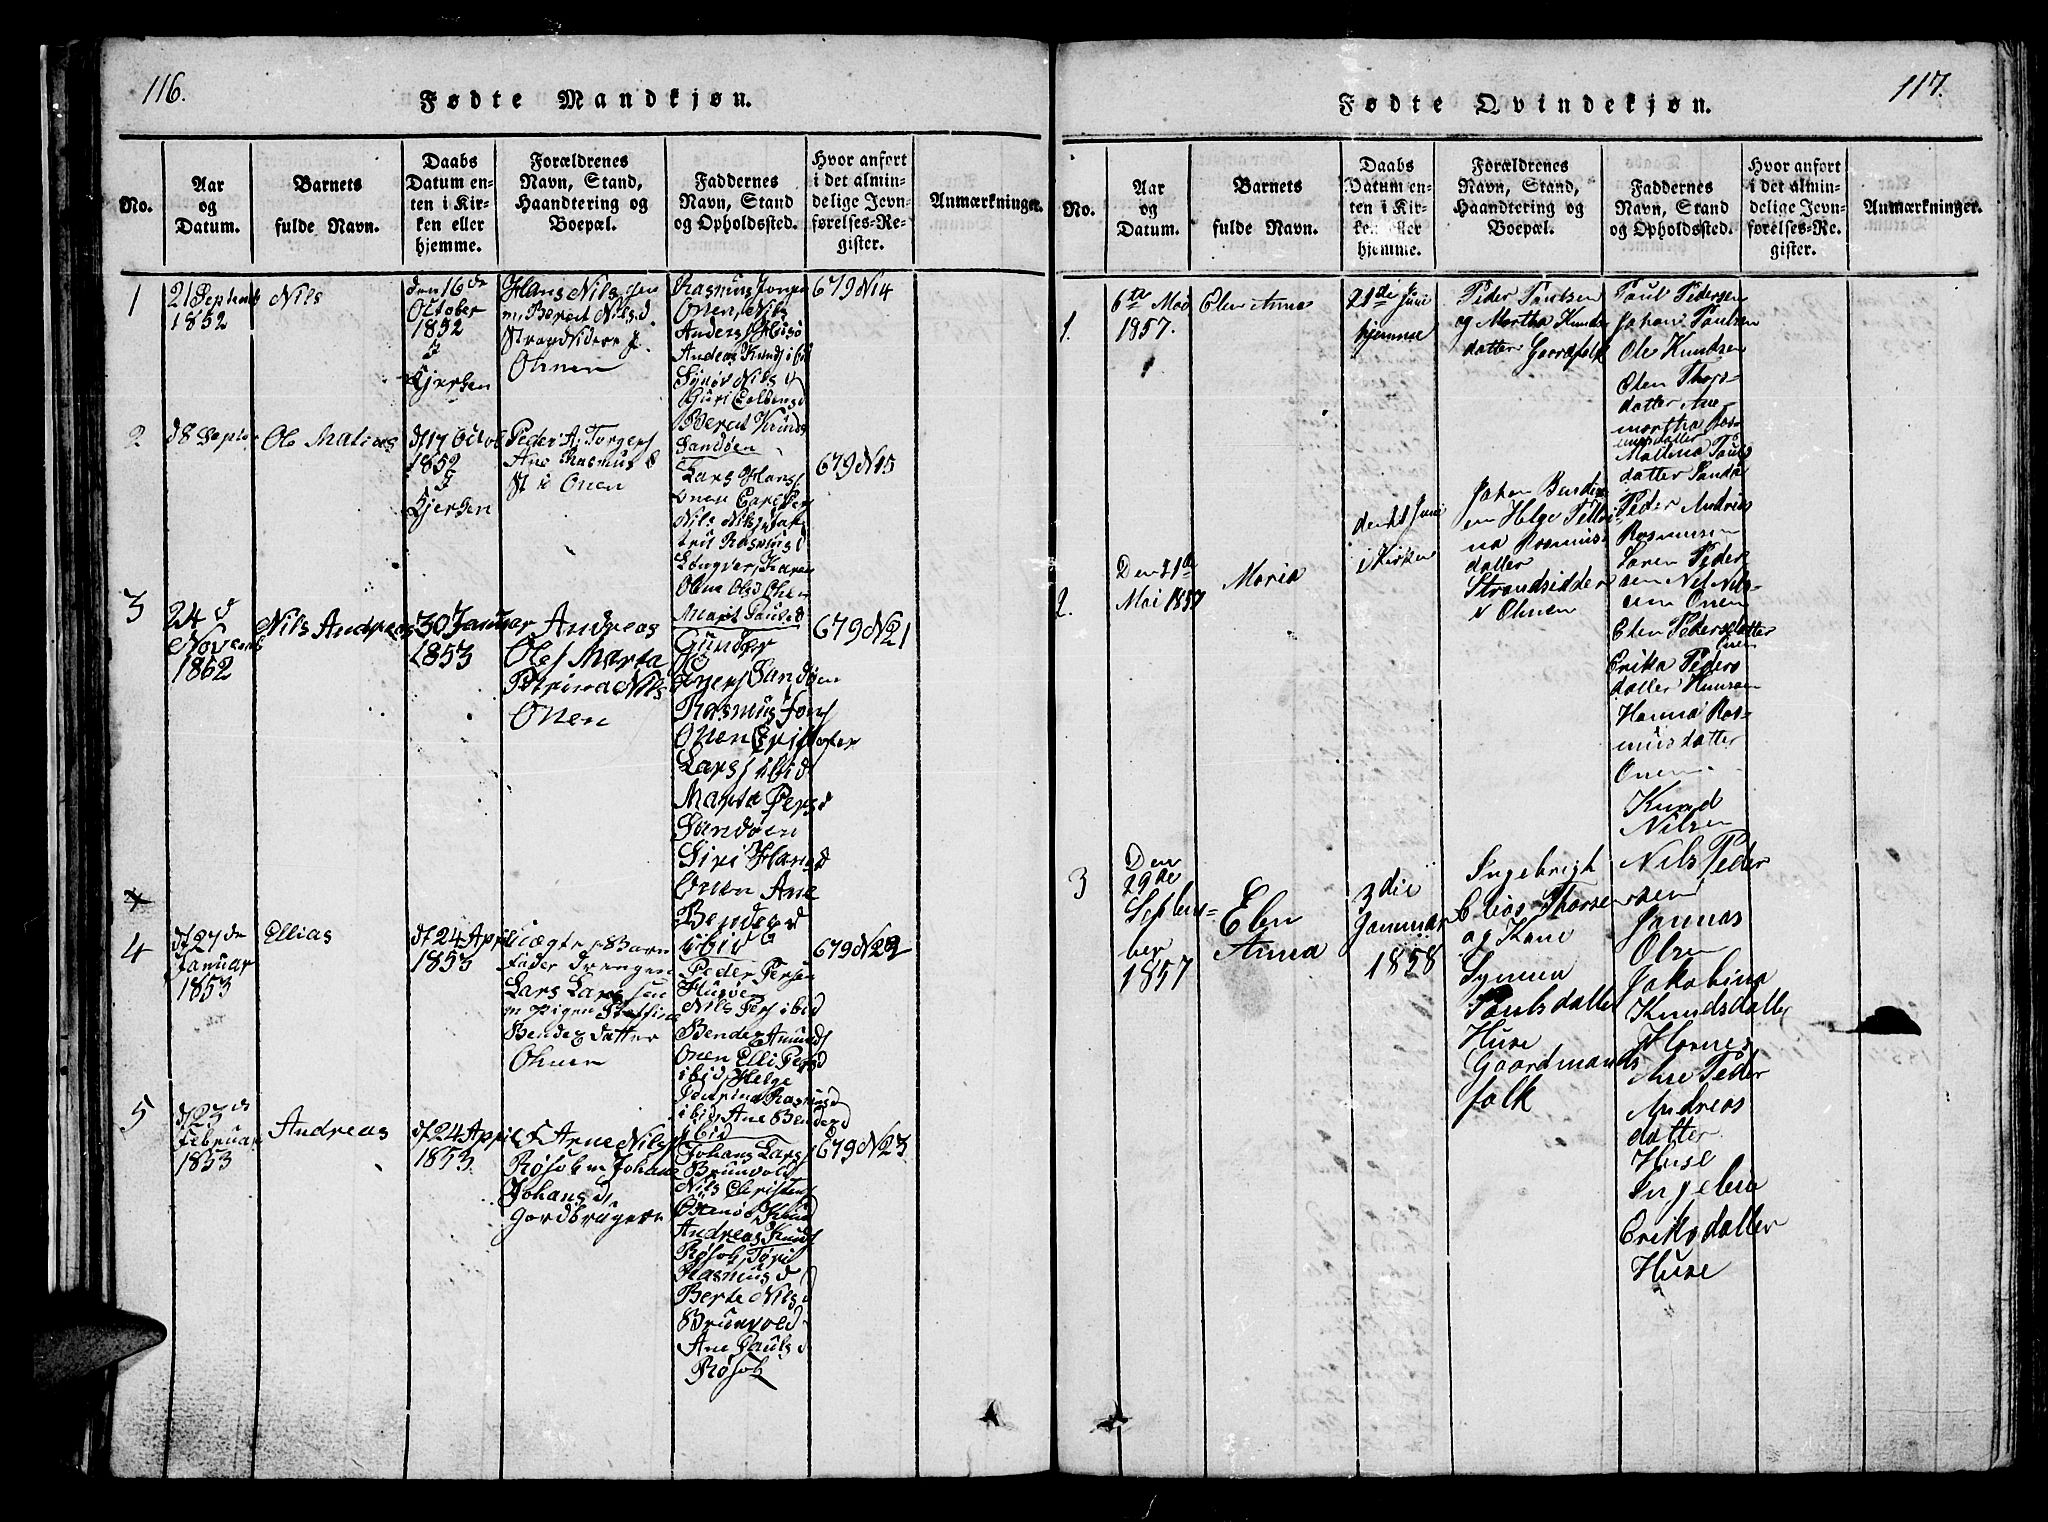 116.
Fødte Mandkjøn.
No.
Aar
og
Datum.
Barnets
fulde Navn.
Daabs
Datum en-
ten i Kir-
ken eller
hjemme.
Forældrenes
Navn, Stand,
Haandtering og
Boepæl.
Faddernes
Navn, Stand
og Opholdssted.
Hvor anført
i det almin-
delige Jevn-
førelses-Re-
gister.
Anmærkninger.
1
21 Septemb
1852
Nils
den 16 de
October
1852
I
Kjerken
Hans Nils sen
m. Beret Nilsd.
Strandsidere
Ohnen
Rasmus
Onen, Nils
Anders Husø
Andreas Knuds ibid
Synøv Nils d
Guri
Beret Knuds
Sandøen
679 N 14
2
d 8 Septbr
Ole Matias
d 17 Octob
1852
I
Kjerken
Peder A. Torgers
Ane Rasmus d
St i Onen
Lars Hans
onen
Nils Nils
Rasmus d
Karen
Olina Ols d Ohnen
Marit Pauls d
679 N 15
3
24 d
Novemb
1852
Nils Andreas
30 Januar
1853
Andreas
Ols Marta
Petrina Nils
Onen
Gunder
Sandøen
Rasmus Jons
Onen
Lars ibid
Marta Pers d
Sandøen
Siri Hans d
Onen Ane
Bendex d
ibid
679 N 21
4
d 27 de
Januar
1853
Ellias
d 24 April
1853
uægte Barn
Fader drengen
Lars Lars sen
m pigen
Bendex datter
Ohnen
Peder Perse
Husøe
Nils Pers ibid
Bendex Amunds
Onen Elli Pers d
ibid, Helge
Petrina Rasmus d
ibid, Ane Bendex d
ibid
679 N 22
5
d 23 d
Februar
1853
Andreas
d 24 April
1853
Arne Nils
Røsok m Johane
Johans d
Gordbrugere
Johans Lars
Brunvold
Nils Christens
Andreas Knuds
Røsok,
Rasmus d
Berte Nils d
Brunvold
Ane Pauls d
Røsok
679 N 23
117.
Fødte Qvindekjøn.
No.
Aar
og
Datum.
Barnets
fulde Navn.
Daabs
Datum en-
ten i Kir-
ken eller
hjemme.
Forældrenes
Navn, Stand,
Haandtering og
Boepæl.
Faddernes
Navn, Stand
og Opholdssted.
Hvor anført
i det almin-
delige Jevn-
førelses-Re-
gister.
Anmærkninger.
1.
6te Mai
1857.
Elen Anna
21de Juni
hjemme
Peder Paulsen
og Martha Knuds
datter Gaardfolk
Paul Pedersen
Johan Paulsen
Ole Knudsen
Elen Thors-
datter Ane
martha Ras-
musdatter
Malena Pauls
datter Sandø
2.
Den 21de
Mai 1857
Maria
den 21 Juni
i Kirken
Johan
Helge Petri
na Rasmus
datter
Strandsidder
Ohnen
Peder Andreas
Rasmussen
Soren Peder
sen Nils-
sen Onen
Elen Pedersdatter
Onen
Erika Peders
datter
Hanna Ras-
musdatter
Onen
3
Den
29de
Septem-
ber
1857
Elen
Anna
3die
Januar
1858
Ingebrigt
Elias Thorsen
og Kone
Synneva
Paulsdatter
Huse
Gaardmands
folk
Knud
Nilsen
Nils Peder
sen
Jonnas
Olsen
Jakobina
Knudsdatter
Ane Peder
Andreas
datter
Huse
Eriksdatter
Huse